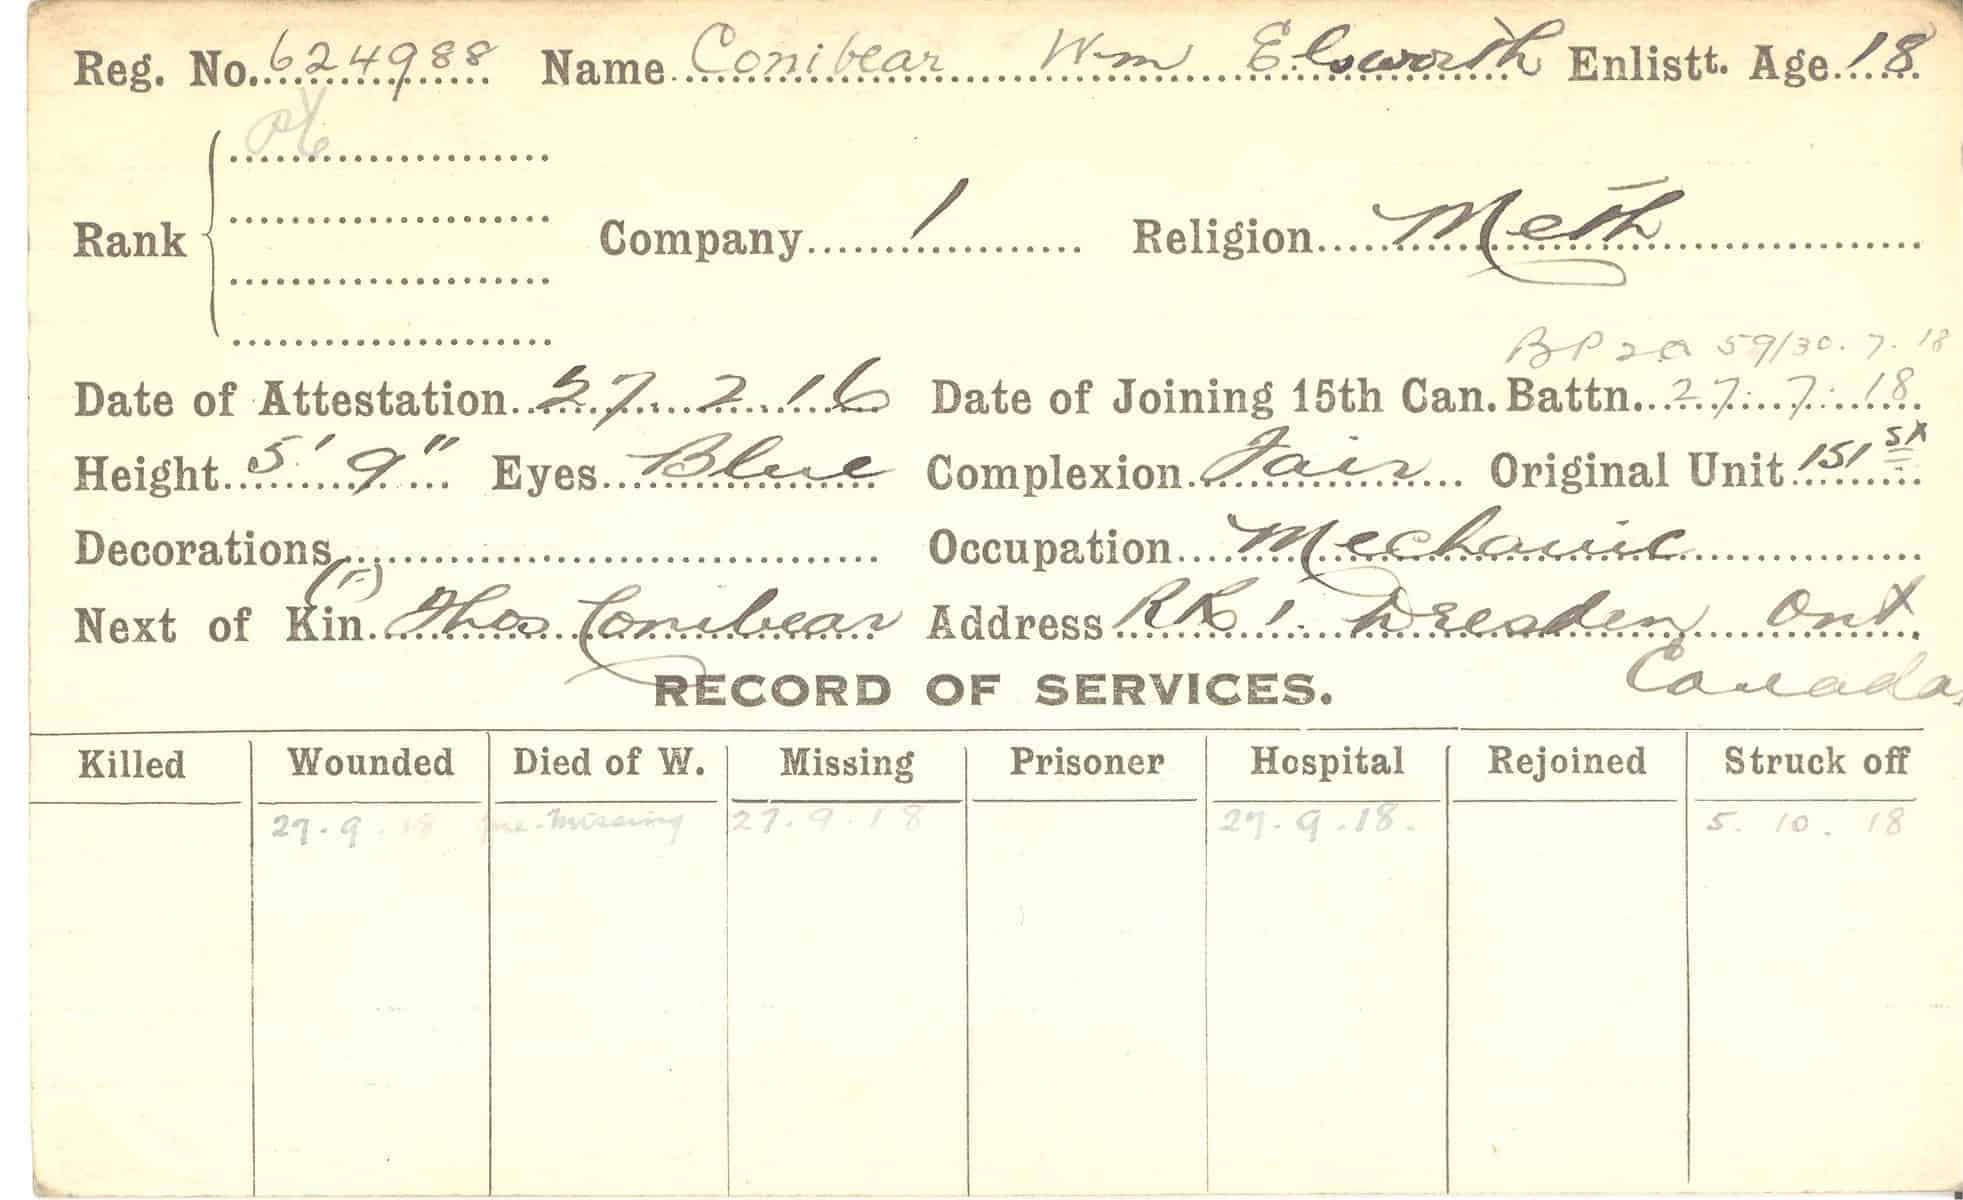 Reg. No. 624988 Name Conibear Wm Elsworth Enlistt. Age. 18
Rank Company 1 Religion Meth
BP 2a 59/30.7.18
Date of Attestation 27.2.16 Date of Joining 15th Can. Battn. 27.7.18
Height 5' 9" Eyes Blue Complexion Fair Original Unit 151st
Decorations Occupation Mechanic
Next of Kin (F) Thos Conibear Address RR 1. Dresden Ont
Canada
RECORD OF SERVICES.
Killed Wounded Died of W. Missing Prisoner Hospital Rejoined Struck off
27.9.18 Missing 27.9.18 27.9.18. 5.10.18